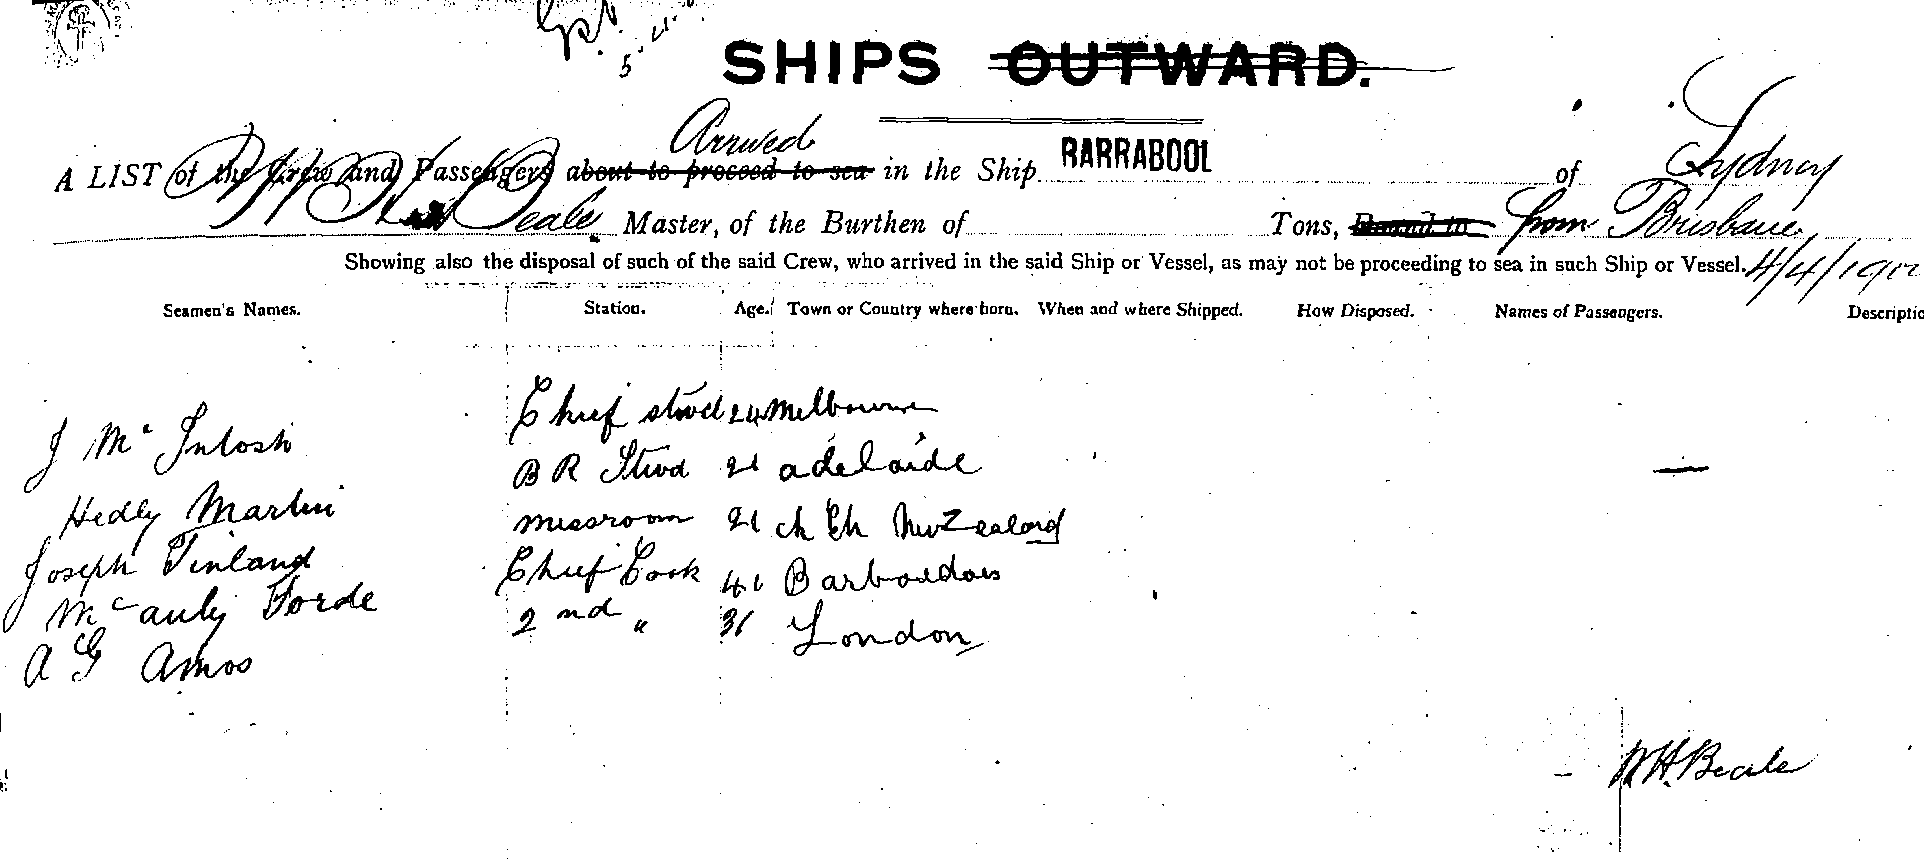 5.4.
SHIPS OUTWARD.
Arrived
A LIST of the Crew and Passengers about to proceed to sea in the Ship BARRABOOL of Sydney
Beale Master, of the Burthen of Tons, Bound to from Brisbane
Showing also the disposal of such of the said Crew, who arrived in the said Ship or Vessel, as may not be proceeding to sea in such Ship or Vessel. 4/4/190
Seamen's Names. Station. Age. Town or Country where born. When and where Shipped. How Disposed. Names of Passengers. Descriptio
J Mc Intosh Chief stwd 24 Melbourne
Hedly Martin B R Stwd 21 adelaide
Joseph Finland messroom 21 ch Ch New Zealand
McAuly Forde Chief Cook 41 Barbardoes
A G Amos 2nd " 31 London
W H Beale